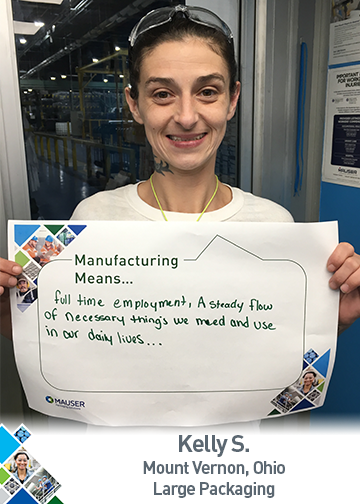 IMPORTANT
FOR WORK
INJURIE
MAUSER
Manufacturing
Means...
full time employment, A steady flow
of necessary thing's we need and use
in our daily lives...
MAUSER
Kelly S.
Mount Vernon, Ohio
Large Packaging